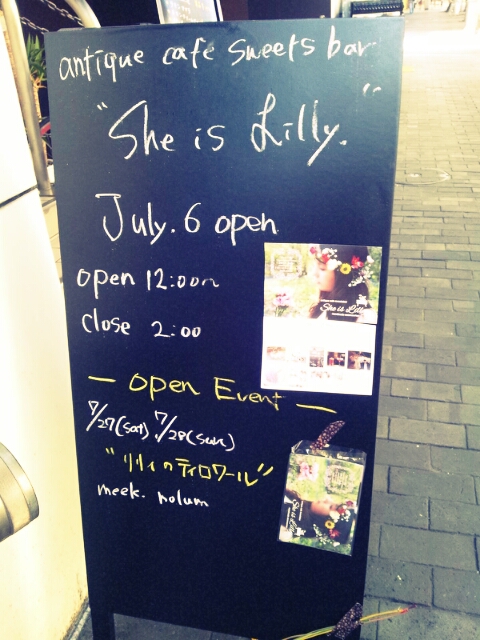 antique cafe sweets bar
"She is Lilly."
July. 6 open
open 12:00
close 2:00
— Open Event —
7/27(sat). 7/28(sun)
"リリィのティロワール"
meek. nolum
She is Lilly
She is Lilly